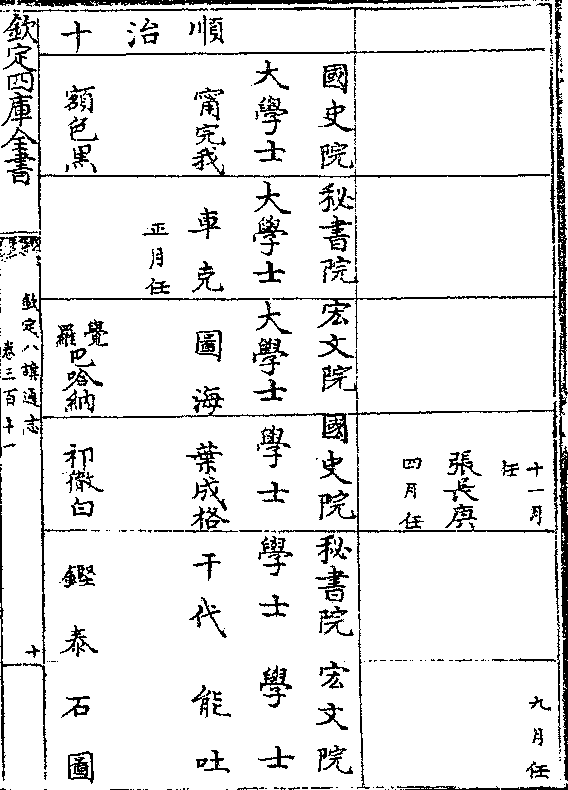 十一月
任
九月任
張長庚
四月任
國史院 秘書院 宏文院 國史院 秘書院 宏文院
大學士 大學士 大學士 學士 學士 學士
順治十
甯完我 車克 圖海 葉成格 干代 能吐
正月任
額色黑 覺羅巴哈納 祁徹白 鏗泰 石圖
欽定四庫全書
欽定八旗通志
卷三百十一
十